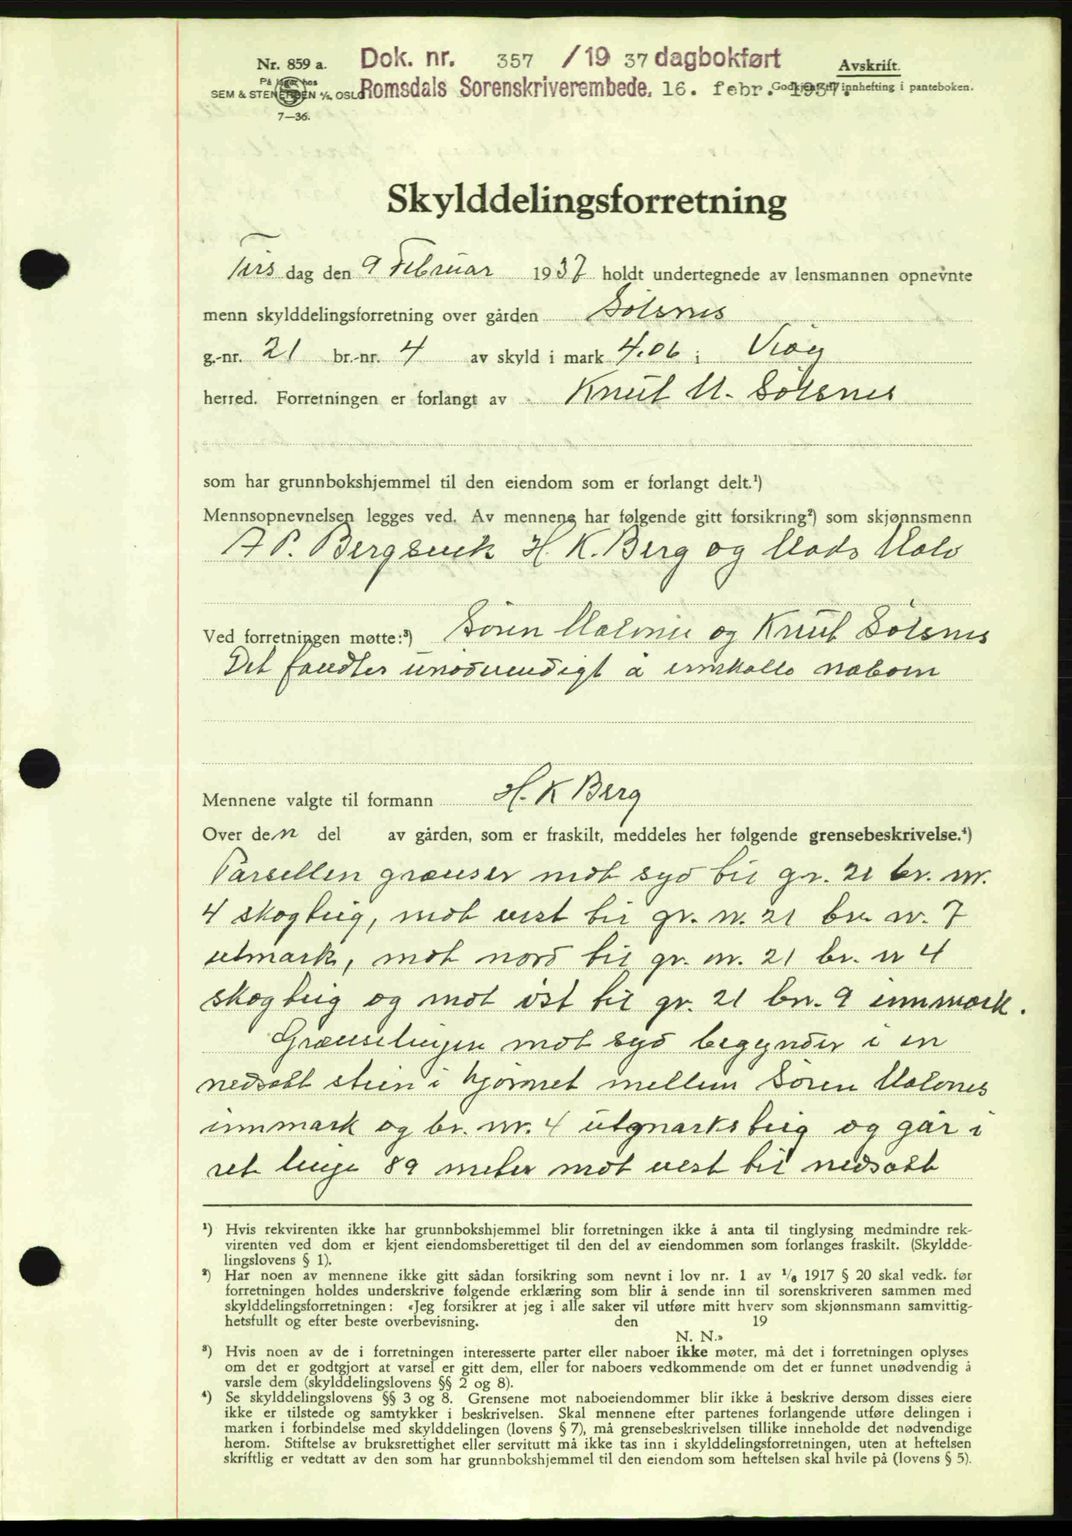 Nr. 859 a.
På lager hos
SEM & STENERSEN A/S, OSLO
7—36.
Dok. nr. 357 /19 37 dagbokført
Romsdals Sorenskriverembede, 16. febr. 1937.
Avskrift.
Godkjent til innhefting i panteboken.
Skylddelingsforretning
Tirs dag den 9 Februar 1937 holdt undertegnede av lensmannen opnevnte
menn skylddelingsforretning over gården Sølsnes
g.-nr. 21 br.-nr. 4 av skyld i mark 4.06 i Veøy
herred. Forretningen er forlangt av Knut M. Sølsnes
som har grunnbokshjemmel til den eiendom som er forlangt delt.¹)
Mennsopnevnelsen legges ved. Av mennene har følgende gitt forsikring²) som skjønnsmenn
A P. Bergsvik H. K. Berg og Mads
Ved forretningen møtte:³) Søren Malones og Knut Sølsnes
Det fandtes unødvendigt å innkalle naboen
Mennene valgte til formann H. K Berg
Over den del av gården, som er fraskilt, meddeles her følgende grensebeskrivelse.⁴)
Parsellen grænser mot syd til gr. 21 br. nr.
4 skogteig, mot vest til gr. nr. 21 br. nr. 7
utmark, mot nord til gr. nr. 21 br. nr 4
skogteig og mot øst til gr. 21 bn. 9 innmark.
Grænselinjen mot syd begynder i en
nedsatt stein i hjørnet mellem Søren Malones
innmark og br. nr. 4 utmarksteig og går i
ret linje 89 meter mot vest til nedsatt
¹) Hvis rekvirenten ikke har grunnbokshjemmel blir forretningen ikke å anta til tinglysing medmindre rek-
virenten ved dom er kjent eiendomsberettiget til den del av eiendommen som forlanges fraskilt. (Skyldde-
lingslovens § 1).
²) Har noen av mennene ikke gitt sådan forsikring som nevnt i lov nr. 1 av 1/6 1917 § 20 skal vedk. før
forretningen holdes underskrive følgende erklæring som blir å sende inn til sorenskriveren sammen med
skylddelingsforretningen: «Jeg forsikrer at jeg i alle saker vil utføre mitt hverv som skjønnsmann samvittig-
hetsfullt og efter beste overbevisning. den 19
N. N.»
³) Hvis noen av de i forretningen interesserte parter eller naboer ikke møter, må det i forretningen oplyses
om det er godtgjort at varsel er gitt dem, eller for naboers vedkommende om det er funnet unødvendig å
varsle dem (skylddelingslovens §§ 2 og 8).
⁴) Se skylddelingslovens §§ 3 og 8. Grensene mot naboeiendommer blir ikke å beskrive dersom disses eiere
ikke er tilstede og samtykker i beskrivelsen. Skal mennene efter partenes forlangende utføre delingen i
marken i forbindelse med skylddelingen (lovens § 7), må grensebeskrivelsen tillike inneholde det nødvendige
herom. Stiftelse av bruksrettighet eller servitutt må ikke tas inn i skylddelingsforretningen, uten at heftelsen
skriftlig er vedtatt av den som har grunnbokshjemmel til den eiendom som heftelsen skal hvile på (lovens § 5).